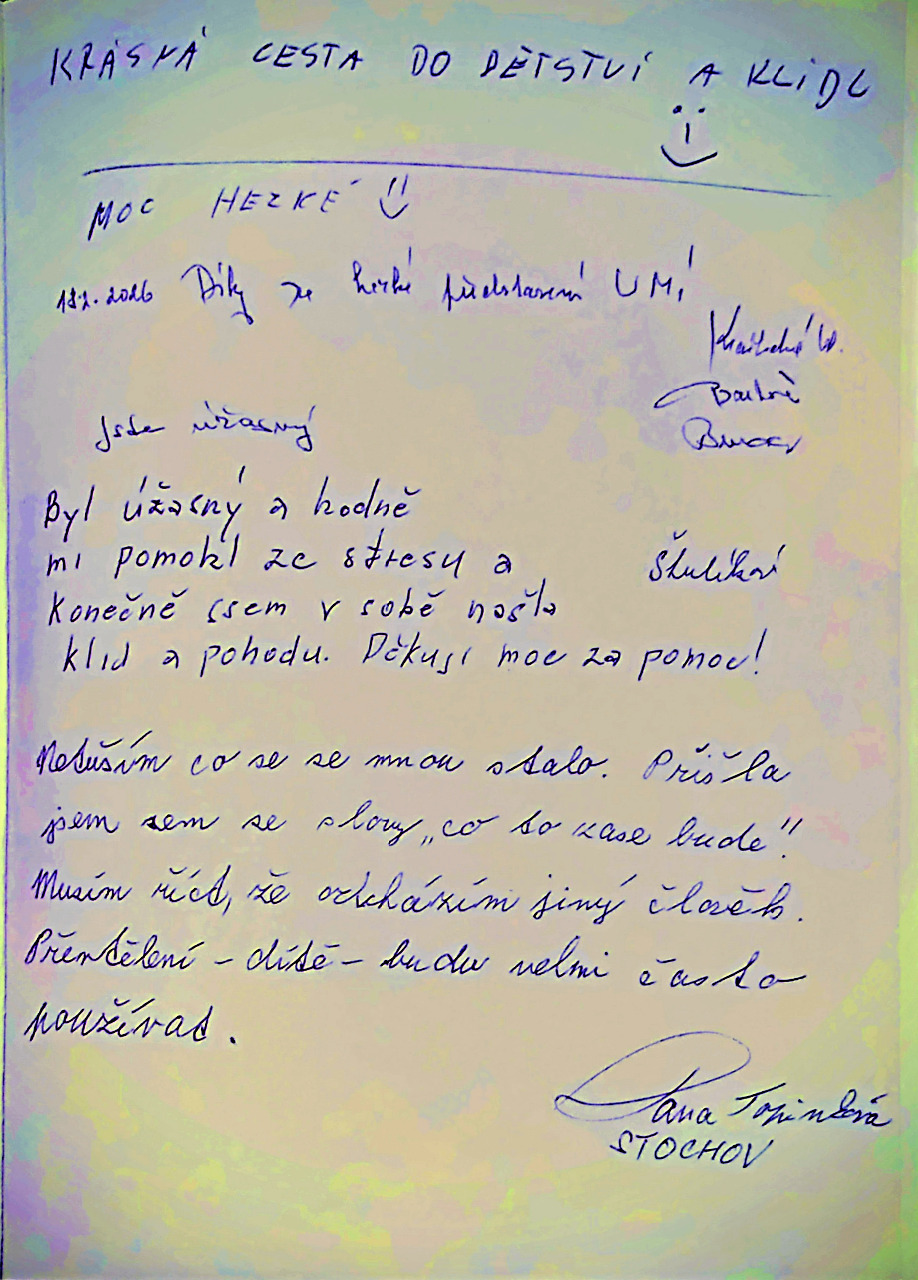 KRÁSNÁ CESTA DO DĚTSTVÍ A KLIDU
MOC HEZKÉ
2026 Díky za hezké představení UMÍ
Jste úžasný
Byl úžasný a hodně
mi pomohl ze stresu a
Konečně jsem v sobě našla
klid a pohodu. Děkuji moc za pomoc!
Netuším co se se mnou stalo. Přišla
jsem sem se slovy „co to zase bude"!
Musím říct, že odcházím jiný člověk.
Převtělení - dítě - budu velmi často
používat.
Jana
STOCHOV